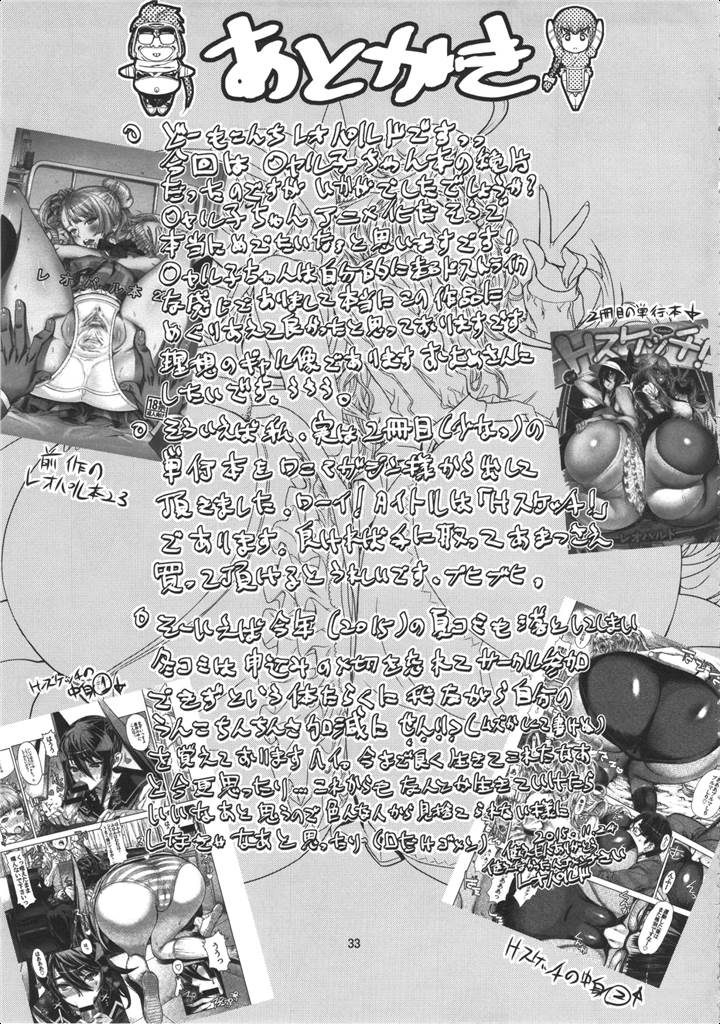 あとがき
どーもこんちレオパルドですっっ
今回は○ャル子ちゃん本の続片
だったのですがいかがでしたでしょうか?
○ャル子ちゃんアニメ化だそうで
本当にめでたいなぁと思いますです!
○ャル子ちゃんは自分的に超ドストライク
な感じでありまして本当にこの作品に
めぐりあえて良かったと思っておりますです
理想のギャル像であります
したいです。ううう。
そういえば私、実は2冊目(少なっ)の
単行本をワニマガジン様から出して
頂きました。ワーイ!タイトルは「Hスケッチ!」
であります。良ければ手に取ってあまつさえ
買って頂けるとうれしいです。ブヒブヒ。
そーいえば今年(2015)の夏コミも落としてしまい
冬コミは申込みの〆切を忘れてサークル参加
できずという体たらくに我ながら自分の
うんこちんちんさ加減に
を覚えておりますハイ。今まで良く生きてこれたなあ
と今更思ったり…これからもなんとか生きていけたら
いいなあと思うので色んな人から見捨てられない様に
しなきゃなあと思ったり(口だけゴメン)
2015.11.24
レオパルド
レオパル本2
18
前作の
レオパル本23
2冊目の単行本
Hスケッチ!
レオパルド
Hスケッチの
中身①
Hスケッチの中身②
33